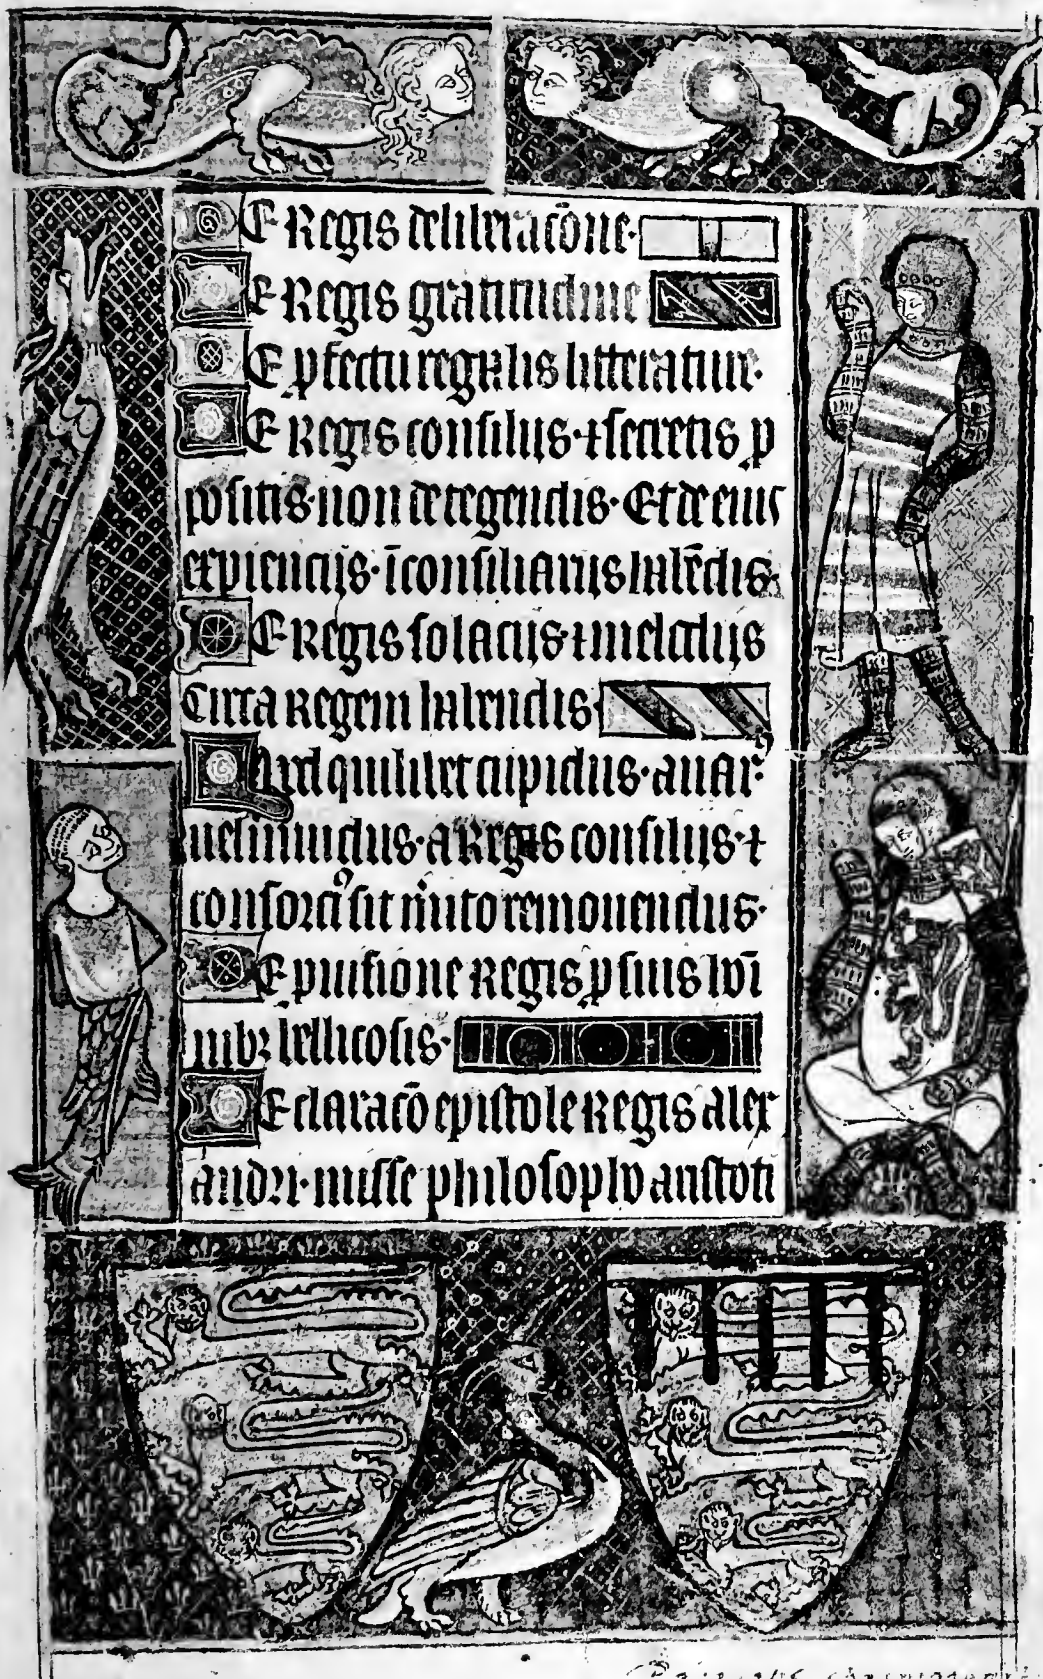 De Regis deliberac̄one·
De Regis gratitudine
De p̱fectu regalis litterature·
De Regis consiliis · ⁊ secretis p̱
positis · non detegendis · Et de eius
exp̱ienciis · ī consiliariis hab̄dis·
De Regis solaciis ⁊ medelis
Circa Regem habendis·
Quod quilibet cupidus · auarꝰ
uel inuidus · a Regis consiliis · ⁊
consorciꝰ sit mͥto remouendus·
De puisione Regis p̱ suis ho̅i
nibꝫ bellicosis·
Declarac̄o epistole Regis alex
andri · misse philosopho aristoti